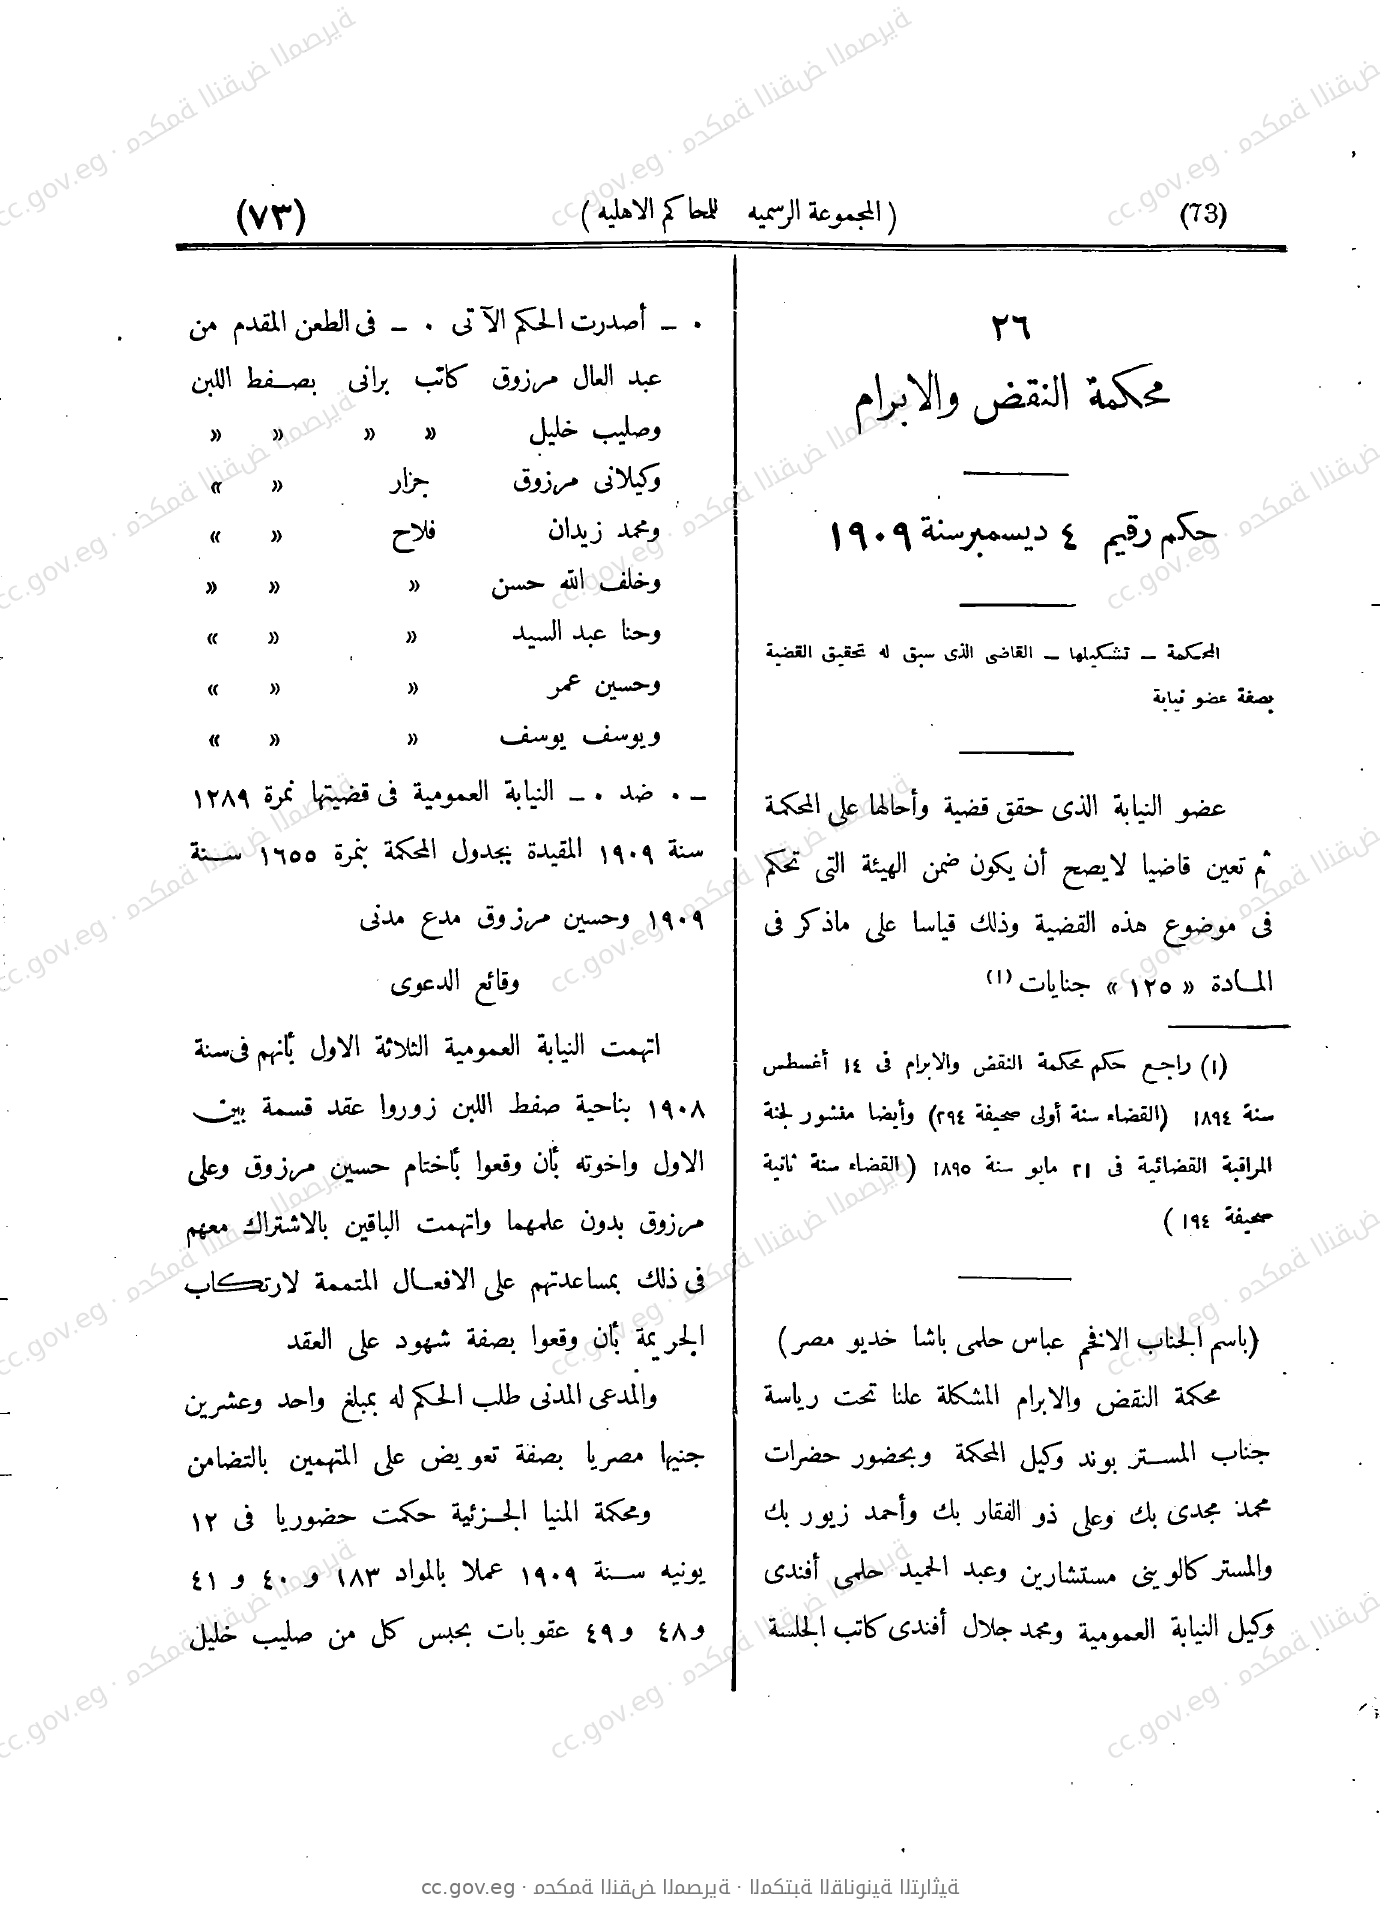 (73) ( المجموعة الرسميه للمحاكم الاهليه ) (٧٣)
٢٦
محكمة النقض والابرام
حكم رقيم ٤ ديسمبر سنة ١٩٠٩
المحكمة – تشكيلها – القاضى الذى سبق له تحقيق القضية
بصفة عضو نيابة
عضو النيابة الذى حقق قضية وأحالها على المحكمة
ثم تعين قاضيا لايصح أن يكون ضمن الهيئة التى تحكم
فى موضوع هذه القضية وذلك قياسا على ماذكر فى
المادة « ١٢٥ » جنايات (١)
(١) راجع حكم محكمة النقض والابرام فى ١٤ أغسطس
سنة ١٨٩٤ (القضاء سنة أولى صحيفة ٢٩٤) وأيضا منشور لجنة
المراقبة القضائية فى ٢١ مايو سنة ١٨٩٥ ( القضاء سنة ثانية
صحيفة ١٩٤ )
(باسم الجناب الافخم عباس حلمى باشا خديو مصر )
محكمة النقض والابرام المشكلة علنا تحت رياسة
جناب المستر بوند وكيل المحكمة وبحضور حضرات
محمد مجدى بك وعلى ذو الفقار بك وأحمد زيور بك
والمستر كالوينى مستشارين وعبد الحميد حلمى أفندى
وكيل النيابة العمومية ومحمد جلال أفندى كاتب الجلسة
٠ – أصدرت الحكم الآتى ٠ – فى الطعن المقدم من
عبد العال مرزوق كاتب برانى بصفط اللبن
وصليب خليل « « « «
وكيلانى مرزوق جزار « »
ومحمد زيدان فلاح « »
وخلف الله حسن « « «
وحنا عبد السيد « « »
وحسين عمر « « »
ويوسف يوسف « « »
– ٠ ضد ٠ – النيابة العمومية فى قضيتها نمرة ١٢٨٩
سنة ١٩٠٩ المقيدة بجدول المحكمة بنمرة ١٦٥٥ سنة
١٩٠٩ وحسين مرزوق مدع مدنى
وقائع الدعوى
اتهمت النيابة العمومية الثلاثة الاول بأنهم فى سنة
١٩٠٨ بناحية صفط اللبن زوروا عقد قسمة بين
الاول واخوته بأن وقعوا بأختام حسين مرزوق وعلى
مرزوق بدون علمهما واتهمت الباقين بالاشتراك معهم
فى ذلك بمساعدتهم على الافعال المتممة لارتكاب
الجريمة بأن وقعوا بصفة شهود على العقد
والمدعى المدنى طلب الحكم له بمبلغ واحد وعشرين
جنيها مصريا بصفة تعويض على المتهمين بالتضامن
ومحكمة المنيا الجزئية حكمت حضوريا فى ١٢
يونيه سنة ١٩٠٩ عملا بالمواد ١٨٣ و ٤٠ و ٤١
و٤٨ و٤٩ عقوبات بحبس كل من صليب خليل
cc.gov.eg · محكمة النقض المصرية · المكتبة القانونية التراثية